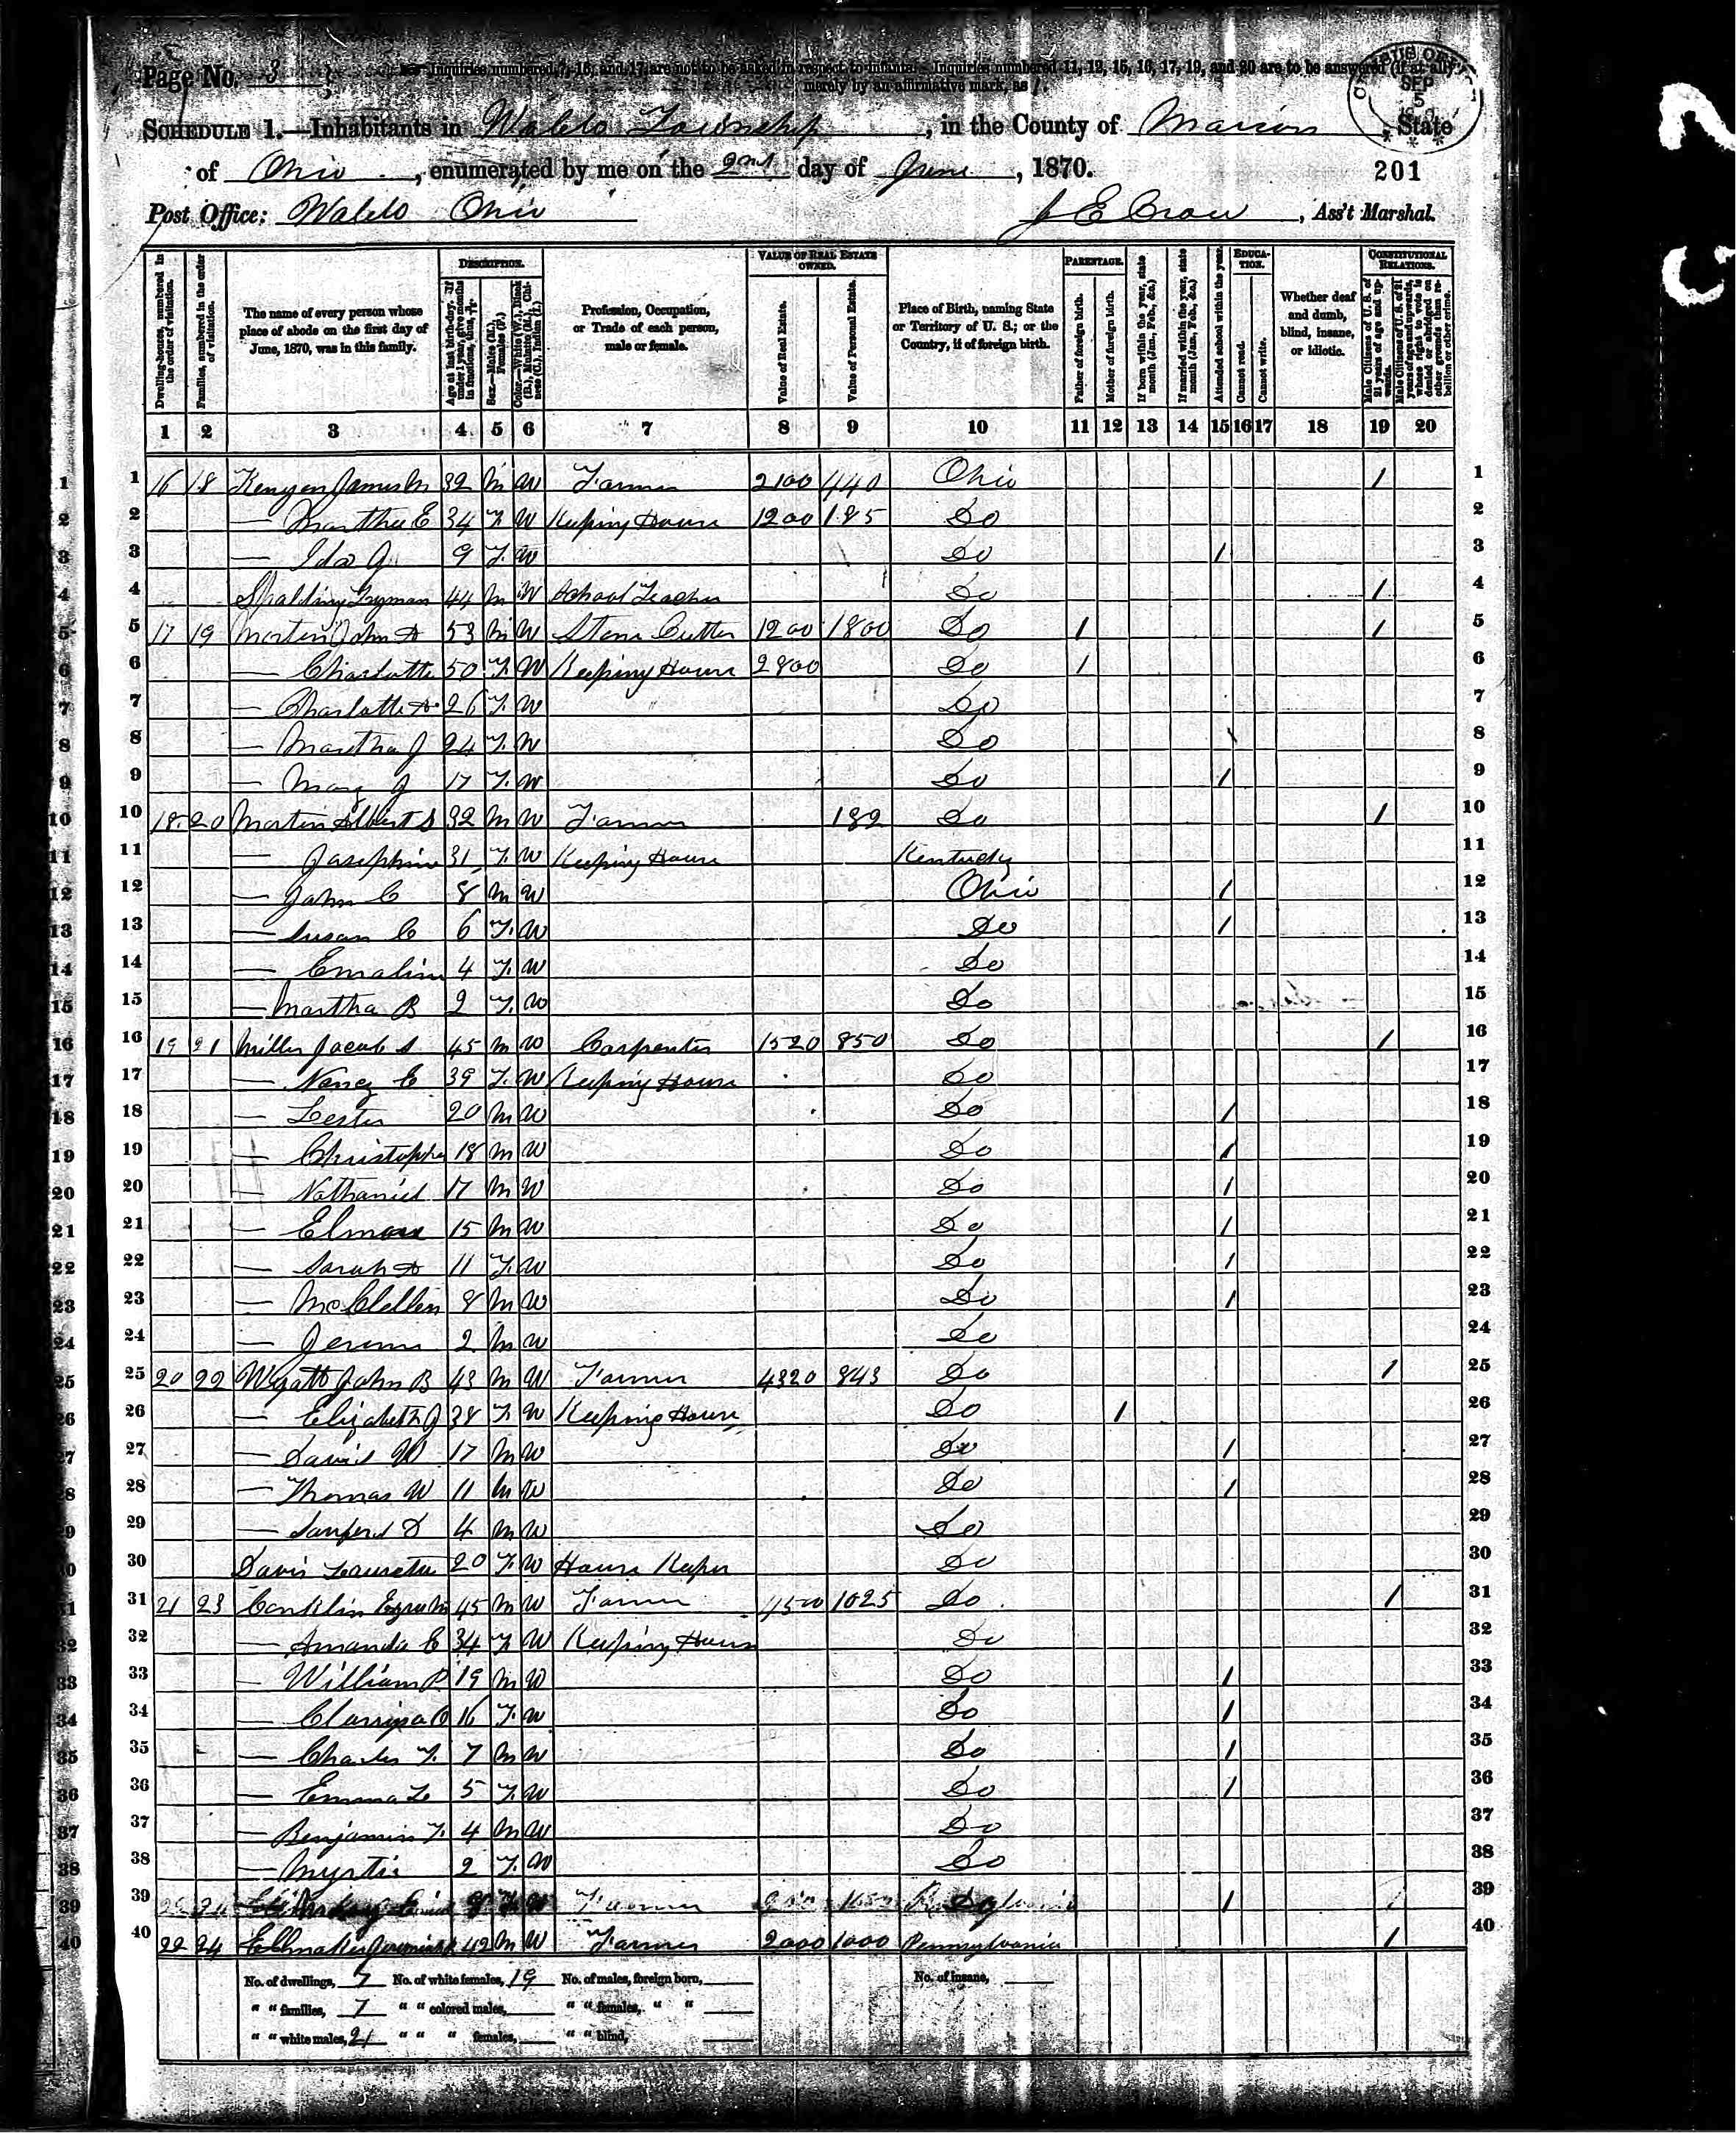 Page No. 3
Inquiries numbered 7, 16, and 17 are not to be asked in respect to infants. Inquiries numbered 11, 12, 15, 16, 17, 19, and 20 are to be answered (if at all) merely by an affirmative mark, as /.
SCHEDULE 1.—Inhabitants in Waldo Township, in the County of Marion, State
of Ohio, enumerated by me on the 2nd day of June, 1870.
201
Post Office: Waldo Ohio
J E Crow, Ass't Marshal.
SEP 5
Dwelling-houses, numbered in the order of visitation.
Families, numbered in the order of visitation.
The name of every person whose place of abode on the first day of June, 1870, was in this family.
DESCRIPTION.
Age at last birth-day. If under 1 year, give months in fractions, thus,
Sex.—Males (M.), Females (F.)
Color.—White (W.), Black (B.), Mulatto (M.), Chinese (C.), Indian (I.)
Profession, Occupation, or Trade of each person, male or female.
VALUE OF REAL ESTATE OWNED.
Value of Real Estate.
Value of Personal Estate.
Place of Birth, naming State or Territory of U. S.; or the Country, if of foreign birth.
PARENTAGE.
Father of foreign birth.
Mother of foreign birth.
If born within the year, state month (Jan., Feb., &c.)
If married within the year, state month (Jan., Feb., &c.)
Attended school within the year.
EDUCATION.
Cannot read.
Cannot write.
Whether deaf and dumb, blind, insane, or idiotic.
CONSTITUTIONAL RELATIONS.
Male Citizens of U. S. of 21 years of age and upwards.
Male Citizens of U. S. of 21 years of age and upwards, whose right to vote is denied or abridged on other grounds than rebellion or other crime.
1 2 3 4 5 6 7 8 9 10 11 12 13 14 15 16 17 18 19 20
1 16 18 Kenyon James M 32 M W Farmer 2100 440 Ohio / 1
2 — Martha E 34 F W Keeping House 1200 185 Do 2
3 — Ida J 9 F W Do / 3
4 Spalding Lyman 44 M W School Teacher Do / 4
5 17 19 Martin John A 53 M W Stone Cutter 1200 1800 Do / / 5
6 — Charlotte 50 F W Keeping House 2800 Do / 6
7 — Charlotte A 26 F W Do 7
8 — Martha J 24 F W Do 8
9 — Mary J 17 F W Do / 9
10 18 20 Martin Albert S 32 M W Farmer 182 Do / 10
11 — Josephine 31 F W Keeping House Kentucky 11
12 — John C 8 M W Ohio / 12
13 — Susan C 6 F W Do / 13
14 — Emaline 4 F W Do 14
15 — Martha B 2 F W Do 15
16 19 21 Miller Jacob S 45 M W Carpenter 1520 850 Do / 16
17 — Nancy E 39 F W Keeping House Do 17
18 — Lester 20 M W Do / 18
19 — Christopher 18 M W Do / 19
20 — Nathaniel 17 M W Do / 20
21 — Elmore 15 M W Do / 21
22 — Sarah A 11 F W Do / 22
23 — McClellin 8 M W Do / 23
24 — Jerome 2 M W Do 24
25 20 22 Wyatt John B 43 M W Farmer 4320 843 Do / 25
26 — Elizabeth J 38 F W Keeping House Do / 26
27 — David W 17 M W Do / 27
28 — Thomas W 11 M W Do / 28
29 — Sanford D 4 M W Do 29
30 Davis Lauretta 20 F W House Keeper Do 30
31 21 23 Conklin Ezra M 45 M W Farmer 4500 1025 Do / 31
32 — Amanda E 34 F W Keeping House Do 32
33 — William P 19 M W Do / 33
34 — Clarrisa O 16 F W Do / 34
35 — Charles F 7 M W Do / 35
36 — Emma L 5 F W Do / 36
37 — Benjamin F 4 M W Do 37
38 — Myrtis 2 F W Do 38
39 22 24 Farmer / 39
40 22 24 42 M W Farmer 2000 1000 Pennsylvania / 40
No. of dwellings, 7 No. of white females, 19 No. of males, foreign born, No. of insane,
" " families, 7 " " colored males, " " females, " "
" " white males, 21 " " " females, " " blind,